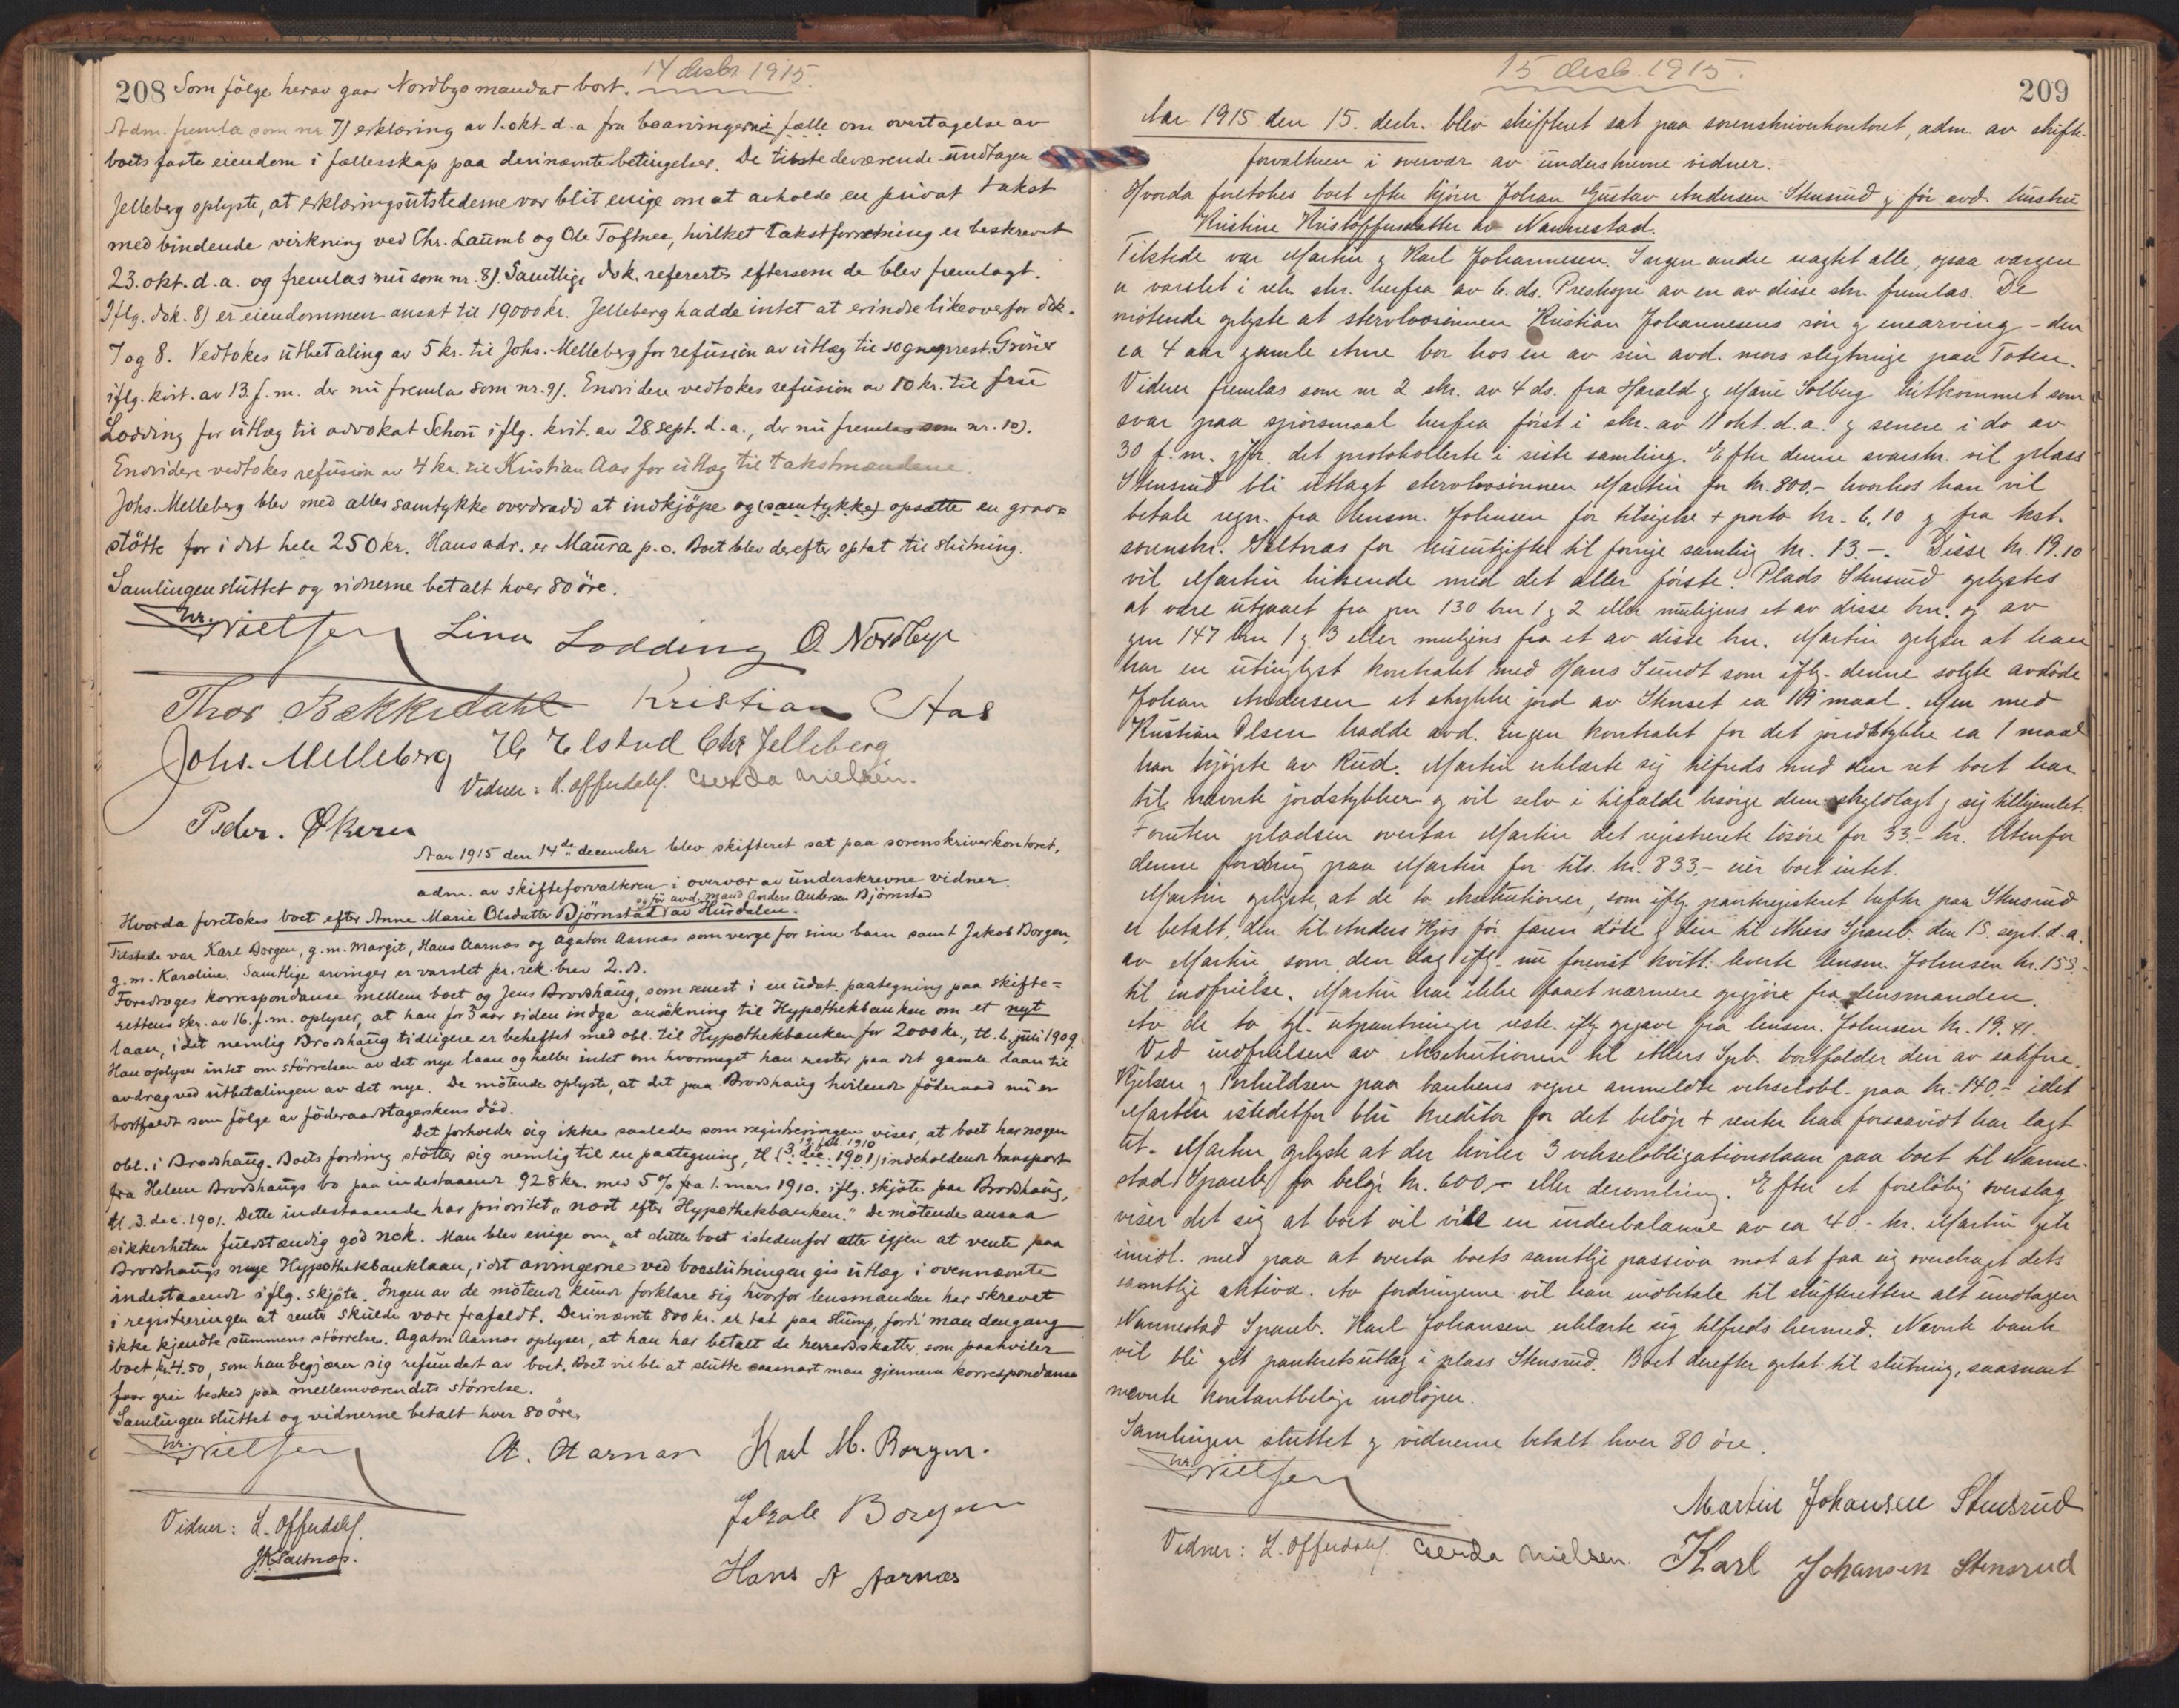 14 desbr 1915.
208 Som følge herav gaar Nordbys mandat bort.
Adm. fremla som nr. 7) erklæring av 1. okt. d.a fra boarvingerne i fælle om overtagelse av
boets faste eiendom i fællesskap paa derinævnte betingelser. De tilstedeværende undtagen
Jelleberg oplyste, at erklæringsutstederne var blit enige om at avholde en privat takst
med bindende virkning ved Chr. Laumb og Ole Toftner, hvilket takstforretning er beskrevet
23. okt. d.a. og fremlas nu som nr. 8). Samtlige dok. refererts eftersom de blev fremlagt.
Iflg. dok. 8) er eiendommen ansat til 19000 kr. Jelleberg hadde intet at erindre likeovefor dok.
7 og 8. Vedtokes utbetaling av 5 kr. til Johs. Melleberg for refusion av utlæg til sogneprest Gröner
iflg. kvit. av 13. f.m. der nu fremlas som nr. 9). Endvidere vedtokes refusion av 10 kr. til fru
Lodding for utlæg til advokat Schou iflg. kvit. av 28. sept. d.a., der nu fremlas som nr. 10).
Endvidere vedtokes refusion av 4 kr. til Kristian Aas for utlæg til takstmændene.
Johs. Melleberg blev med alles samtykke overdradd at indkjøpe og (samtykke) opsætte en grav-
støtte for i det hele 250 kr. Hans adr. er Maura p.o. Boet blev derefter optat til slutning.
Samlingen sluttet og vidnerne betalt hver 80 öre.
Nielsen Lina Lodding O. Nordbye
Thor Bækkedahl Kristian Aas
Johs. Melleberg H Elstad Chr Jelleberg
Vidner: L. Offerdahl. Gerda Nielsen.
Peder. Økern
Aar 1915 den 14de december blev skifteret sat paa sorenskriverkontoret,
adm. av skifteforvalteren i overvær av underskrevne vidner.
og før avd. mand Anders Andersen Bjørnstad
Hvorda foretokes boet efter Anne Marie Olsdatter Bjørnstad av Hurdalen.
Tilstede var Karl Borgen, g.m. Margit, Hans Aarnæs og Agaton Aarnæs som verge for sine barn samt Jakob Borgen,
g.m. Karoline. Samtlige arvinger er varslet pr. rek. brev 2. ds.
Foredroges korrespondanse mellem boet og Jens Brodshaug, som senest i en udat. paategning paa skifte-
rettens skr. av 16. f.m. oplyser, at han for 3 aar siden indga ansökning til Hypothekbanken om et nyt
laan, idet nemlig Brodshaug tidligere er beheftet med obl. til Hypothekbanken for 2000 kr., tl. 6. juli 1909.
Han oplyser intet om størrelsen av det nye laan og heller intet om hvormeget han rester paa det gamle laan til
avdrag ved utbetalingen av det nye. De mötende oplyste, at det paa Brodshaug hvilende föderaad nu er
bortfaldt som følge av föderaadstagerskens död.
Det forholder sig ikke saaledes som registreringen viser, at boet har nogen
obl. i Brodshaug. Boets fordring støtter sig nemlig til en paategning, tl (3. dec. 1901) indeholdende transport
fra Helene Brodshaugs bo paa indestaaende 928 kr. med 5% fra 1. mars 1910. iflg. skjöte paa Brodshaug,
tl. 3. dec. 1901. Dette indestaaende har prioritet "næst efter Hypothekbanken." De mötende ansaa
sikkerheten fuldstændig god nok. Man blev enige om, at slutte boet istedenfor atter igjen at vente paa
Brodshaugs nye Hypothekbanklaan, idet arvingerne ved boslutningen gis utlæg i ovennævnte
indestaaende iflg. skjöte. Ingen av de mötende kunde forklare sig hvorfor lensmanden har skrevet
i registreringen at rente skulde være frafaldt. Derinævnte 800 kr. er tat paa slump, fordi man dengang
ikke kjendte summens størrelse. Agaton Aarnæs oplyser, at han har betalt de herredsskatter som paahviler
boet kr. 4.50, som han begjærer sig refundert av boet. Boet vil bli at slutte saasnart man gjennem korrespondanse
faar grei besked paa mellemværendets størrelse.
Samlingen sluttet og vidnerne betalt hver 80 öre.
Nielsen A. Aarnæs Karl M. Borgen.
Jakob Borgen
Vidner: L. Offerdahl.
Hans A Aarnæs
15 desb. 1915.
209
Aar 1915 den 15. decbr. blev skifteret sat paa sorenskriverkontoret, adm. av skifte-
forvalteren i overvær av underskrevne vidner.
Hvorda foretokes boet efter kjører Johan Gustav Andersen Stensrud & før avd. hustru
Kristine Kristoffersdatter av Nannestad.
Tilstede var Martin & Karl Johannesen. Ingen andre uagtet alle, ogsaa vergen
er varslet i rek. skr. herfra av 6. ds. Preskopi av en av disse skr. fremlas. De
møtende oplyste at stervbosønnen Kristian Johannesens søn & enearving - den
ca 4 aar gamle Arne bor hos en av sin avd. mors slegtninge paa Toten.
Videre fremlas som nr 2 skr. av 4 ds. fra Harald & Marie Solberg hitkommet som
svar paa spørsmaal herfra først i skr. av 11 okt. d.a. & senere i do av
30 f.m. jfr. det protokollerte i siste samling. Efter denne svarskr. vil plass
Stensrud bli utlagt stervbosønnen Martin for kr. 800,- hvorhos han vil
betale regn. fra lensm. Johnsen for tilsigelse + porto kr. 6,10 & fra kst.
sorenskr. Saltnæs for reiseutgifter til forrige samling kr. 13.-. Disse kr. 19.10
vil Martin hitsende med det aller første. Plads Stensrud oplystes
at være utgaaet fra gnr 130 bnr 1 & 2 eller muligens et av disse bnr. og av
gnr 147 bnr 1 & 3 eller muligens fra et av disse bnr. Martin oplyser at han
har en utinglyst kontrakt med Hans Sundt som iflg. denne solgte avdøde
Johan Andersen et stykke jord av Stenset ca maal. Men med
Kristian Olsen hadde avd. ingen kontrakt for det jordstykke ca 1 maal
han kjøpte av Rud. Martin erklærte sig tilfreds med den ret boet har
til nævnte jordstykker & vil selv i tilfælde besørge dem skyldlagt & sig tilhjemlet.
Foruten pladsen overtar Martin det registrerte løsøre for 33.- kr. Utenfor
denne fordring paa Martin for tils. kr. 833.- eier boet intet.
Martin oplyste, at de to eksekutioner, som iflg. panteregisteret hefter paa Stensrud
er betalt, den til Anders Kjos før faren døde & den til Akers Spareb. den 15. sept. d.a.
av Martin, som den dag iflg. nu forevist kvitt. leverte lensm. Johnsen kr. 155.-
til indfrielse. Martin har ikke faaet nærmere opgjøre fra lensmanden.
Av de to tgl. utpantninger rester iflg. opgave fra lensm. Johnsen kr. 19.41.
Ved indfrielsen av eksekutionen til Akers Spb. bortfalder den av sakfører
Kjelsen & Torkildsen paa bankens vegne anmeldte vekselobl. paa kr. 140.- idet
Martin istedetfor blir kreditor for det beløp + renter han forsaavidt har lagt
ut. Martin oplyste at der hviler 3 vekselobligationslaan paa boet til Nanne-
stad Spareb. for beløp kr. 600,- eller deromkring. Efter et foreløbig overslag
viser det sig at boet vil vise en underbalanse av ca 40.- kr. Martin gik
imidl. med paa at overta boets samtlige passiva mot at faa sig overdraget dets
samtlige aktiva. Av fordringerne vil han indbetale til skifteretten alt undtagen
Nannestad Spareb. Karl Johansen erklærte sig tilfreds hermed. Nævnte bank
vil bli git panteretsutlæg i plass Stensrud. Boet derefter optat til slutning, saasnart
nævnte kontantbeløp indløper.
Samlingen sluttet & vidnerne betalt hver 80 öre.
Nielsen
Martin Johansen Stensrud
Vidner: L. Offerdahl. Gerda Nielsen. Karl Johansen Stensrud